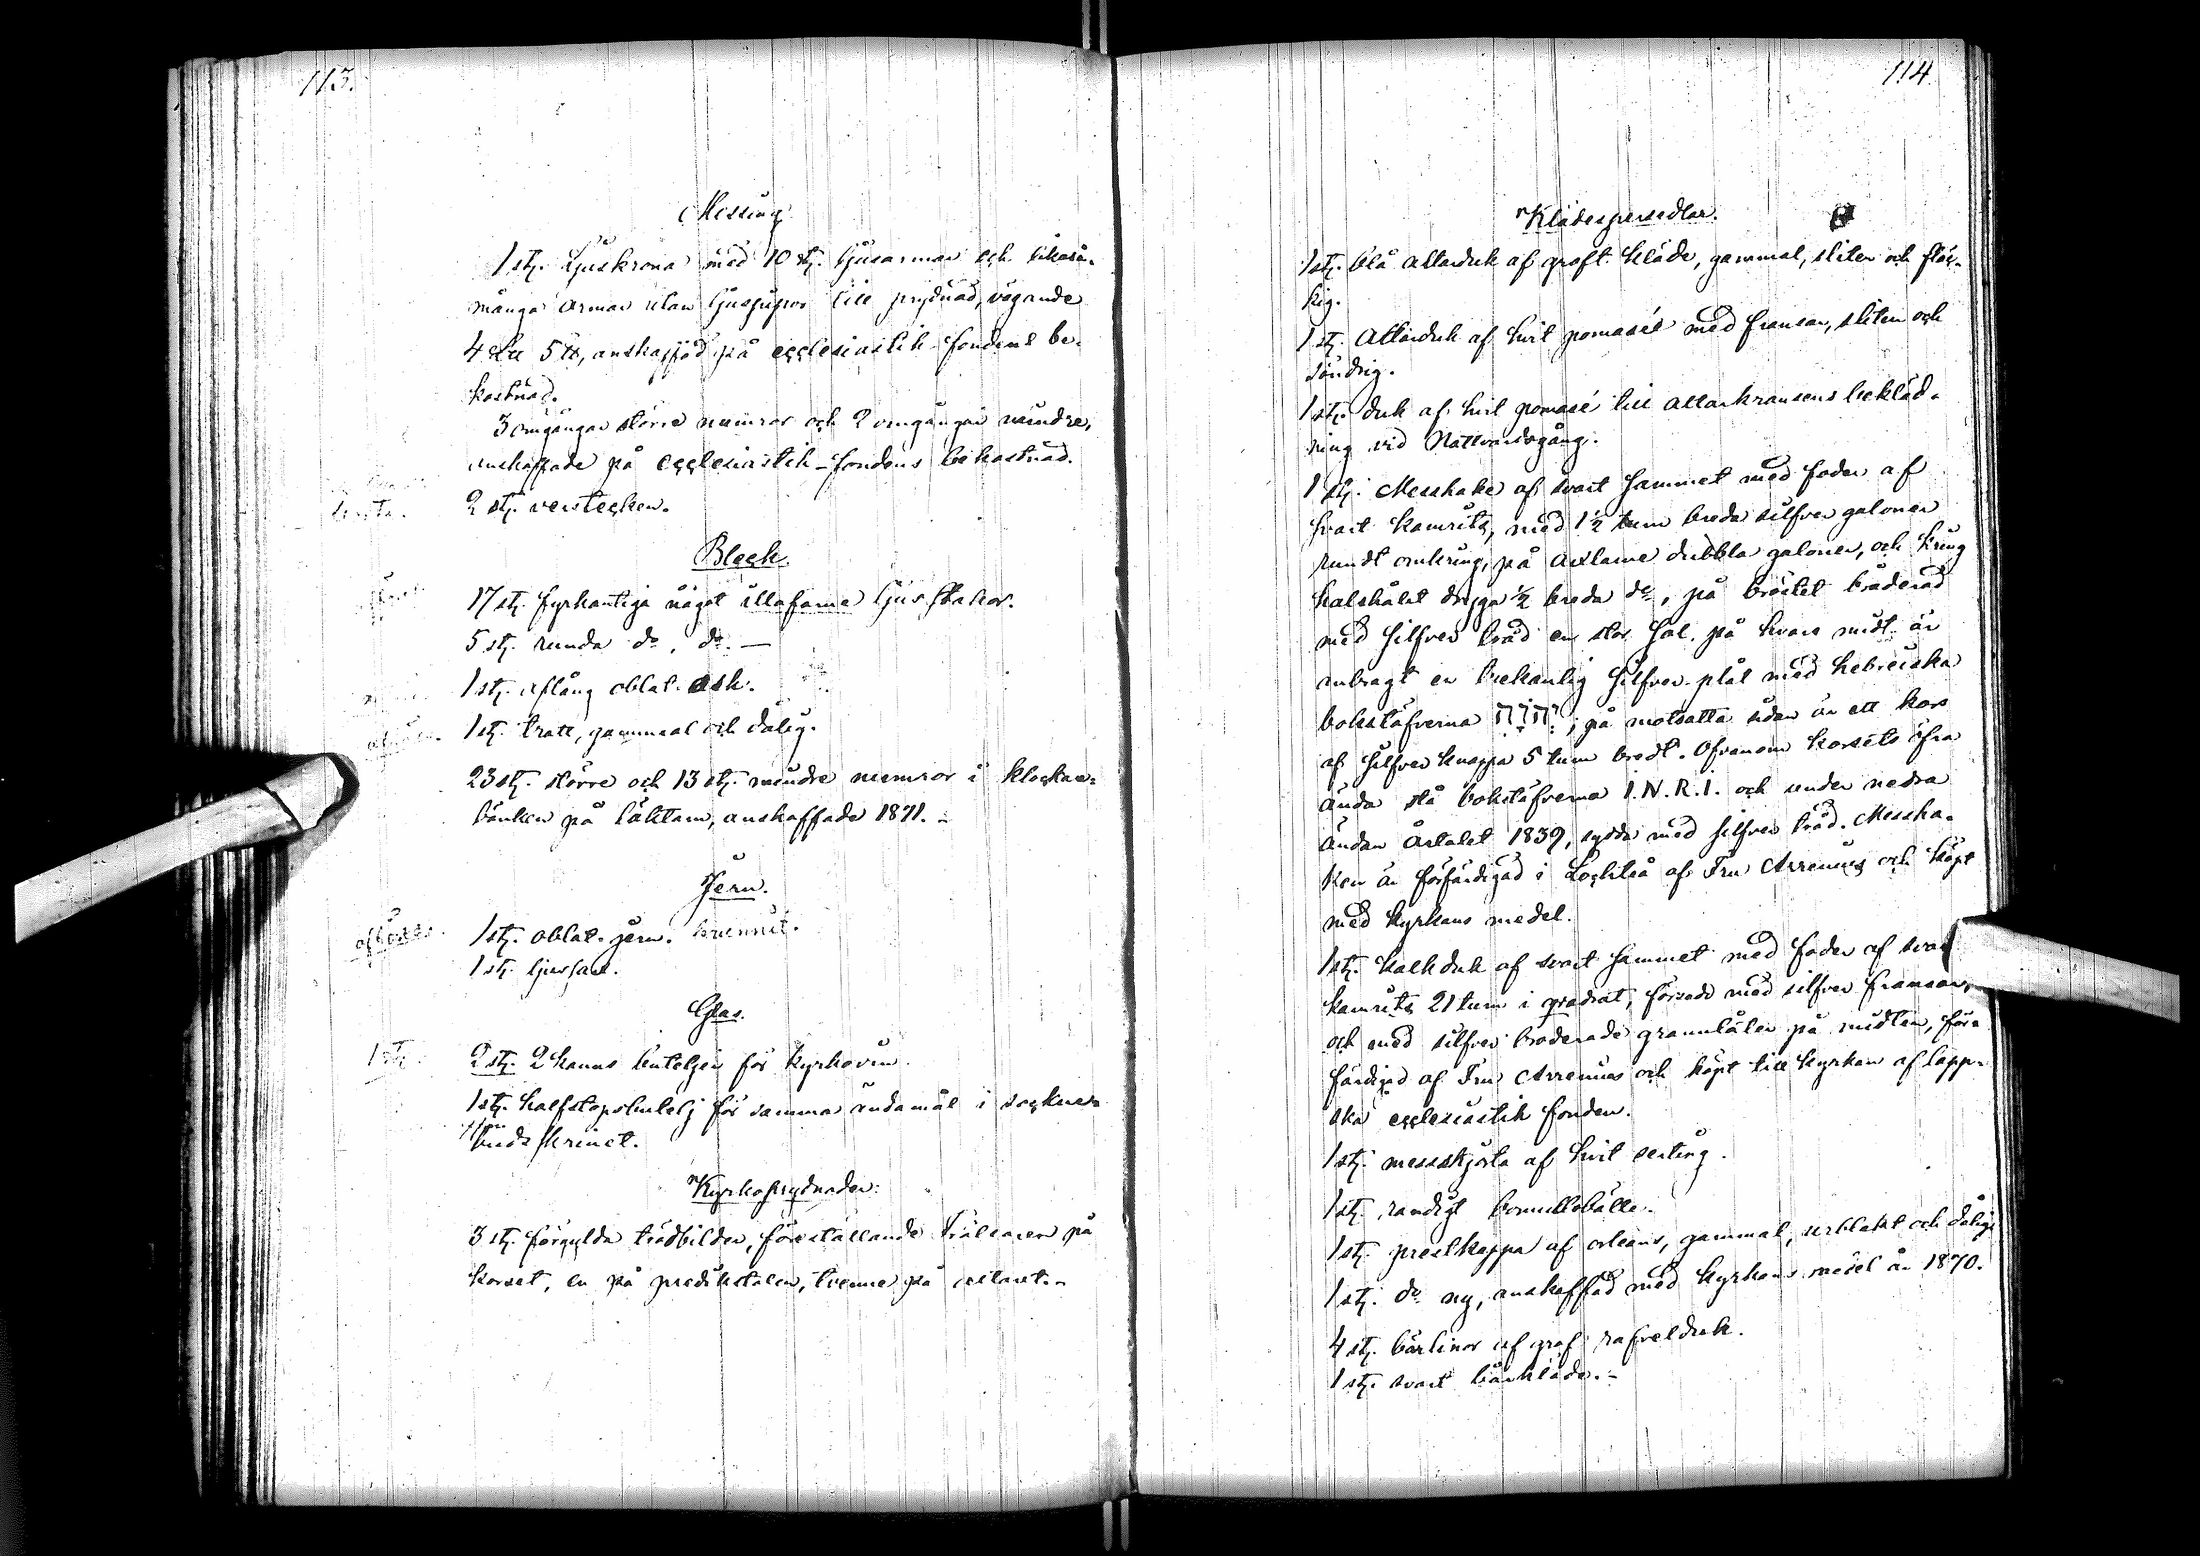 113.
Messing
1 st. Ljuskrona med 10 st. ljusarmar och likaså
många armar utan ljuspipor till prydnad, vägande
4 L℔ 5 ℔, anskaffad på ecclesiastik-fondens be-
kostnad.
3 omgångar större numror och 2 omgångar mindre,
anskaffade på ecclesiastik-fondens bekostnad.
2 st. verstecken.
Bleck.
17 st. fyrkantiga något illafarna ljusstakar.
5 st. runda do. do. —
1 st. aflång oblat-ask.
1 st. tratt, gammal och dålig.
23 st. större och 13 st. mindre numror i klockare-
bänken på läktarn, anskaffade 1871. -
Jern.
afföres. 1 st. oblat-jern. brunnit.
1 st. ljussax.
Glas.
1 st. 2 st. 2 kanns buteljer för kyrkovin.
1 st. halfstopsbutelj för samma ändamål i sockne-
budsskrinet.
Kyrkoprydnader.
3 st. förgylda trädbilder, föreställande Frälsaren på
korset, en på predikstolen, tvenne på altaret. -
114
Klädespersedlar.
1 st. blå altarduk af groft kläde, gammal, sliten och fläc-
kig.
1 st. Altarduk af hvit pomasé med fransar, sliten och
söndrig.
1 st. duk af hvit pomasé till altarkransens bekläd-
ning vid Nattvardsgång.
1 st. Messhake af svart sammet med foder af
svart kamrits, med 1 ½ tum breda silfver galoner
rundt omkring, på axlarne dubbla galoner, och kring
halshålet dryga ½ breda do, på bröstet broderad
med silfver tråd en stor sol, på hvars midt är
anbragt en trekantig silfver-plåt med hebreiska
bokstäfverna יהוה; på motsatta sidan är ett kors
af silfver knappa 5 tum bredt. Ofvanom korsets öfra
ända stå bokstäfverna I.N.R.I. och under nedra
ändan årtalet 1839, sydda med silfver tråd. Messha-
ken är förfärdigad i Lochteå af Fru Arrenius och köpt
med kyrkans medel.
1 st. kalkduk af svart sammet med foder af svart
kamrits 21 tum i qvadrat, försedd med silfver fransar,
och med silfver broderade grannlåter på midten, för-
färdigad af Fru Arrenius och köpt till kyrkan af lapp-
ska ecclesiastik fonden.
1 st. messskjorta af hvit serting.
1 st. randigt bomullsbälte.
1 st. prestkappa af orleans, gammal, urblekt och dålig
1 st. do ny, anskaffad med kyrkans medel år 1870.
4 st. bårlinor af grof rafvelduk.
1 st. svart bårkläde. -